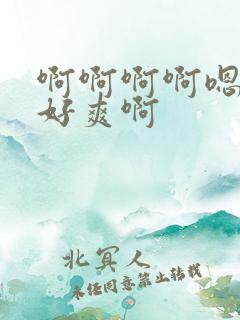 啊啊啊啊嗯
好爽啊
北冥人
未经同意禁止转载